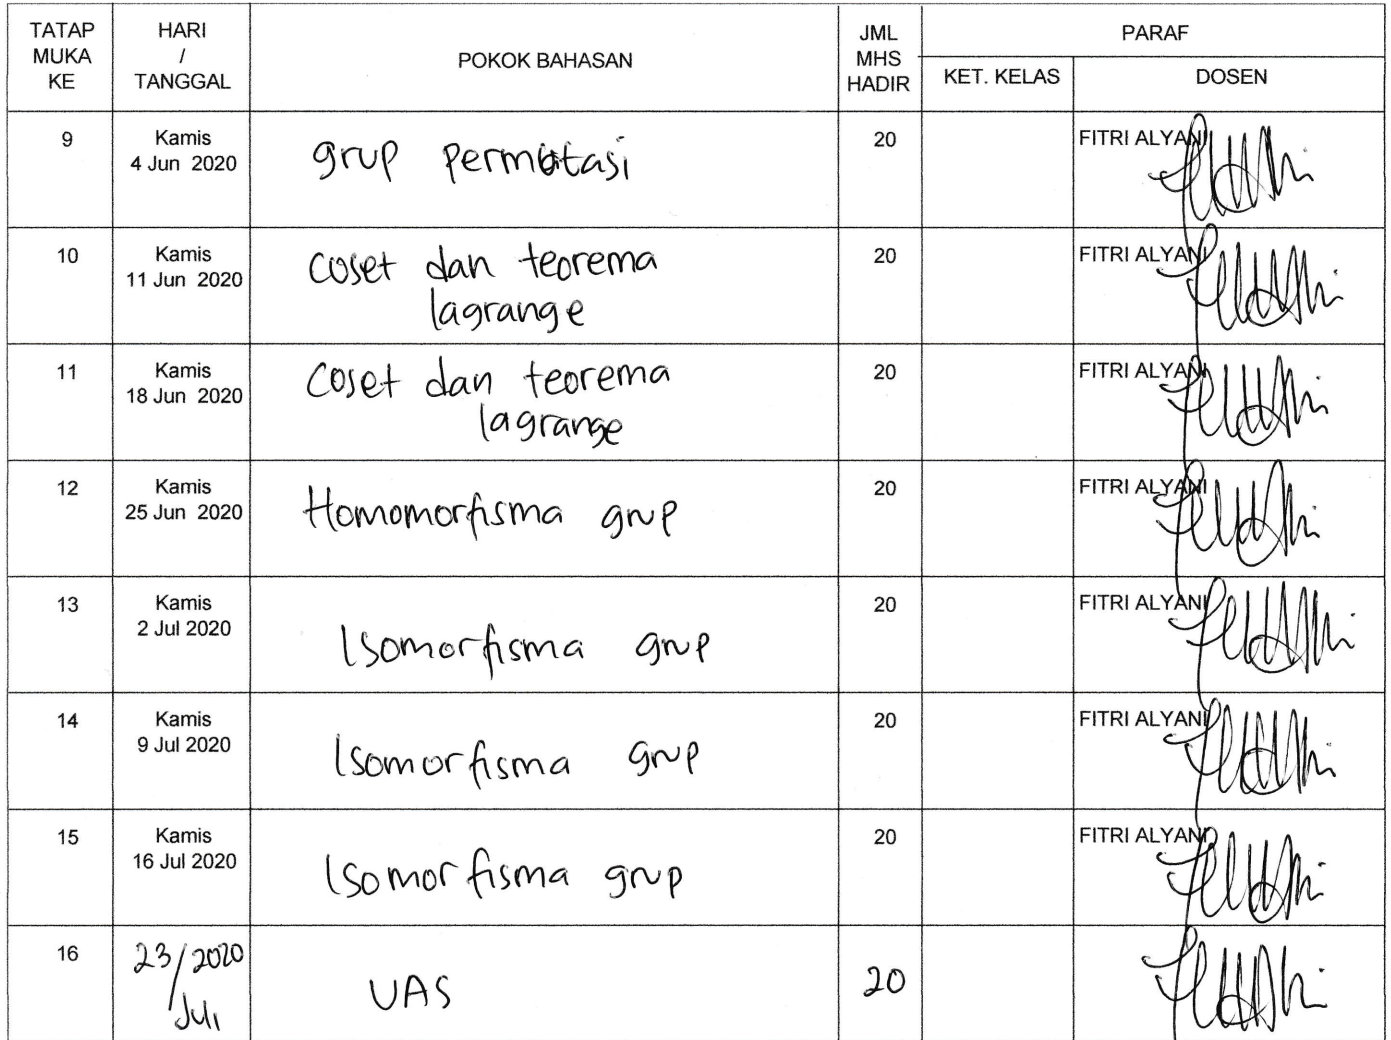 TATAP MUKA KE
HARI / TANGGAL
POKOK BAHASAN
JML MHS HADIR
PARAF
KET. KELAS
DOSEN
9
Kamis
4 Jun 2020
grup permutasi
20
FITRI ALYANI
10
Kamis
11 Jun 2020
coset dan teorema
lagrange
20
FITRI ALYANI
11
Kamis
18 Jun 2020
coset dan teorema
lagrange
20
FITRI ALYANI
12
Kamis
25 Jun 2020
Homomorfisma grup
20
FITRI ALYANI
13
Kamis
2 Jul 2020
Isomorfisma grup
20
FITRI ALYANI
14
Kamis
9 Jul 2020
Isomorfisma grup
20
FITRI ALYANI
15
Kamis
16 Jul 2020
Isomorfisma grup
20
FITRI ALYANI
16
23/2020
Juli
UAS
20